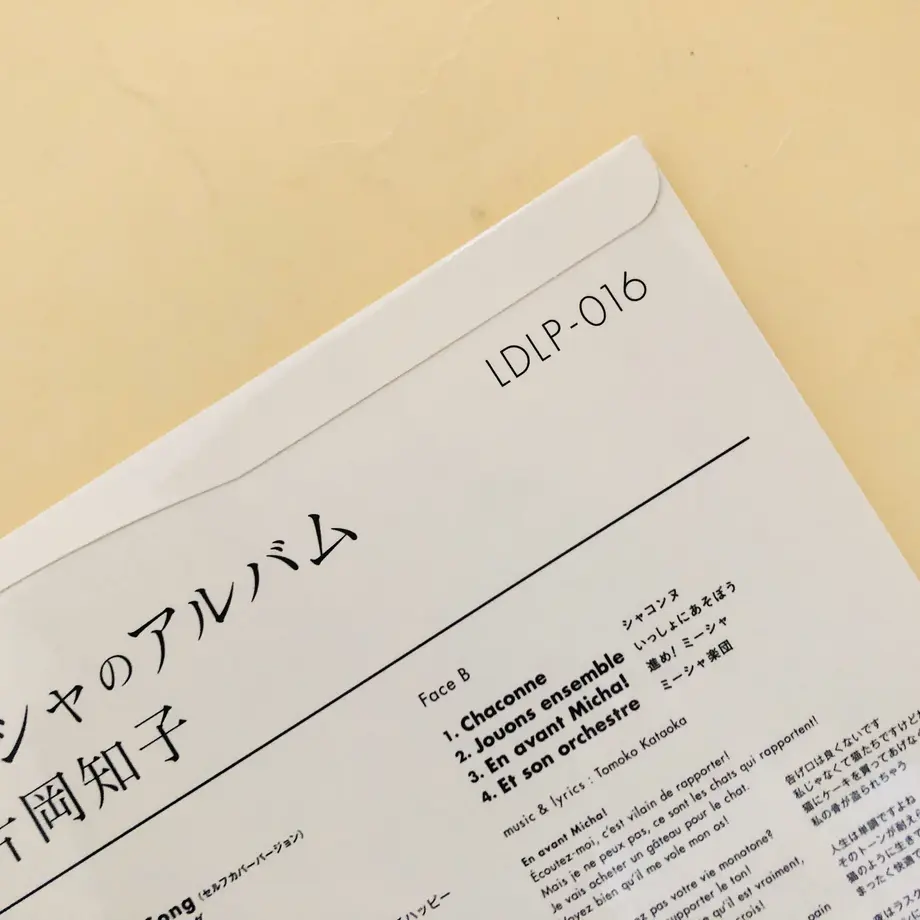 LDLP-016
シャのアルバム
片岡知子
Song (セルフカバーバージョン)
ハッピー
Face B
1. Chaconne シャコンヌ
2. Jouons ensemble いっしょにあそぼう
3. En avant Micha! 進め! ミーシャ
4. Et son orchestre ミーシャ楽団
music & lyrics : Tomoko Kataoka
En avant Micha!
Écoutez-moi, c'est vilain de rapporter!
Mais je ne peux pas, ce sont les chats qui rapportent!
Je vais acheter un gâteau pour le chat.
bien qu'il me vole mon os!
pas votre vie monotone?
supporter le ton!
qu'il est vraiment,
告げ口は良くないです
私じゃなくて猫たちですけど
猫にケーキを買ってあげな
私の骨が盗られちゃう
人生は単調ですよね
そのトーンが耐え
猫のように生き
まったく快適で